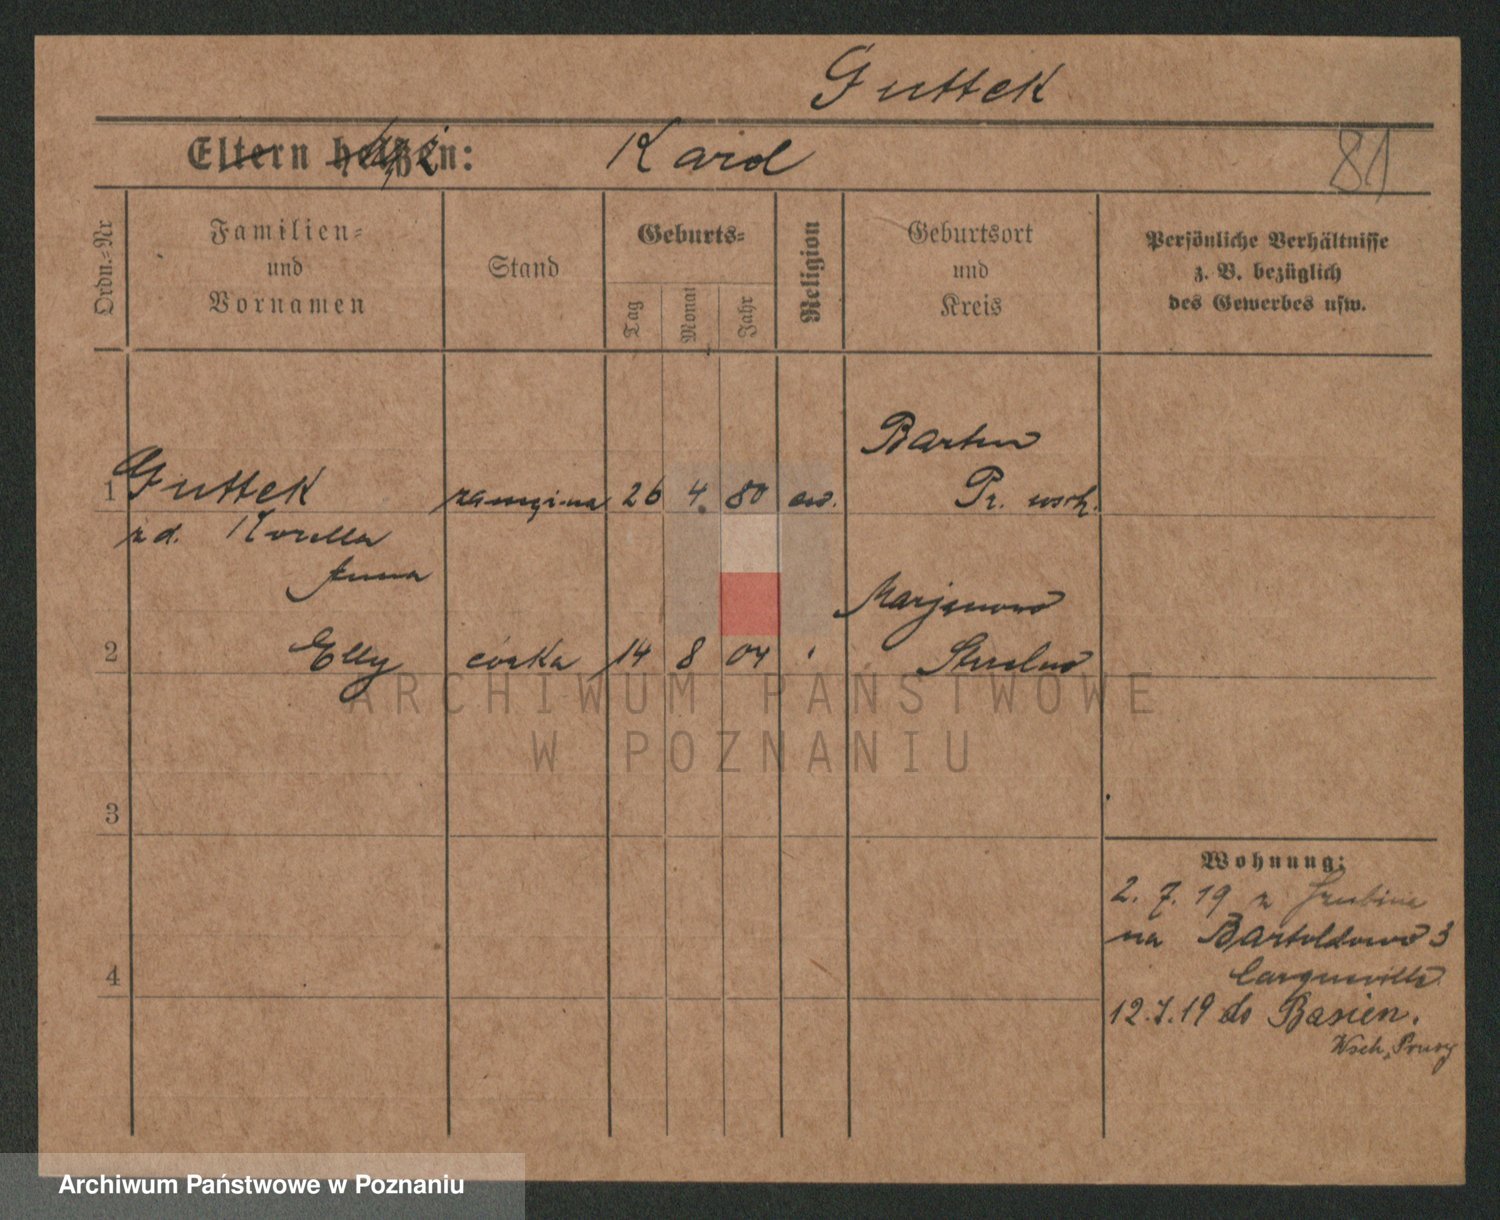 Guttek
Eltern heißen: mąż Karol
81
Ordn.-Nr
Familien-
und
Vornamen
Stand
Geburts-
Tag
Monat
Jahr
Religion
Geburtsort
und
Kreis
Persönliche Verhältnisse
z. B. bezüglich
des Gewerbes usw.
Barten
1 Guttek zamężna 26 4. 80 ew. Pr. wsch.
zd. Korella
Anna
Marjanowo
2 Elly córka 14 8 04 Strzelno
ARCHIWUM PAŃSTWOWE
W POZNANIU
3
Wohnung:
2. 7. 19 z Szubina
na Bartoldowo 3
4
12.7.19 do Basien.
Wsch. Prusy
Archiwum Państwowe w Poznaniu